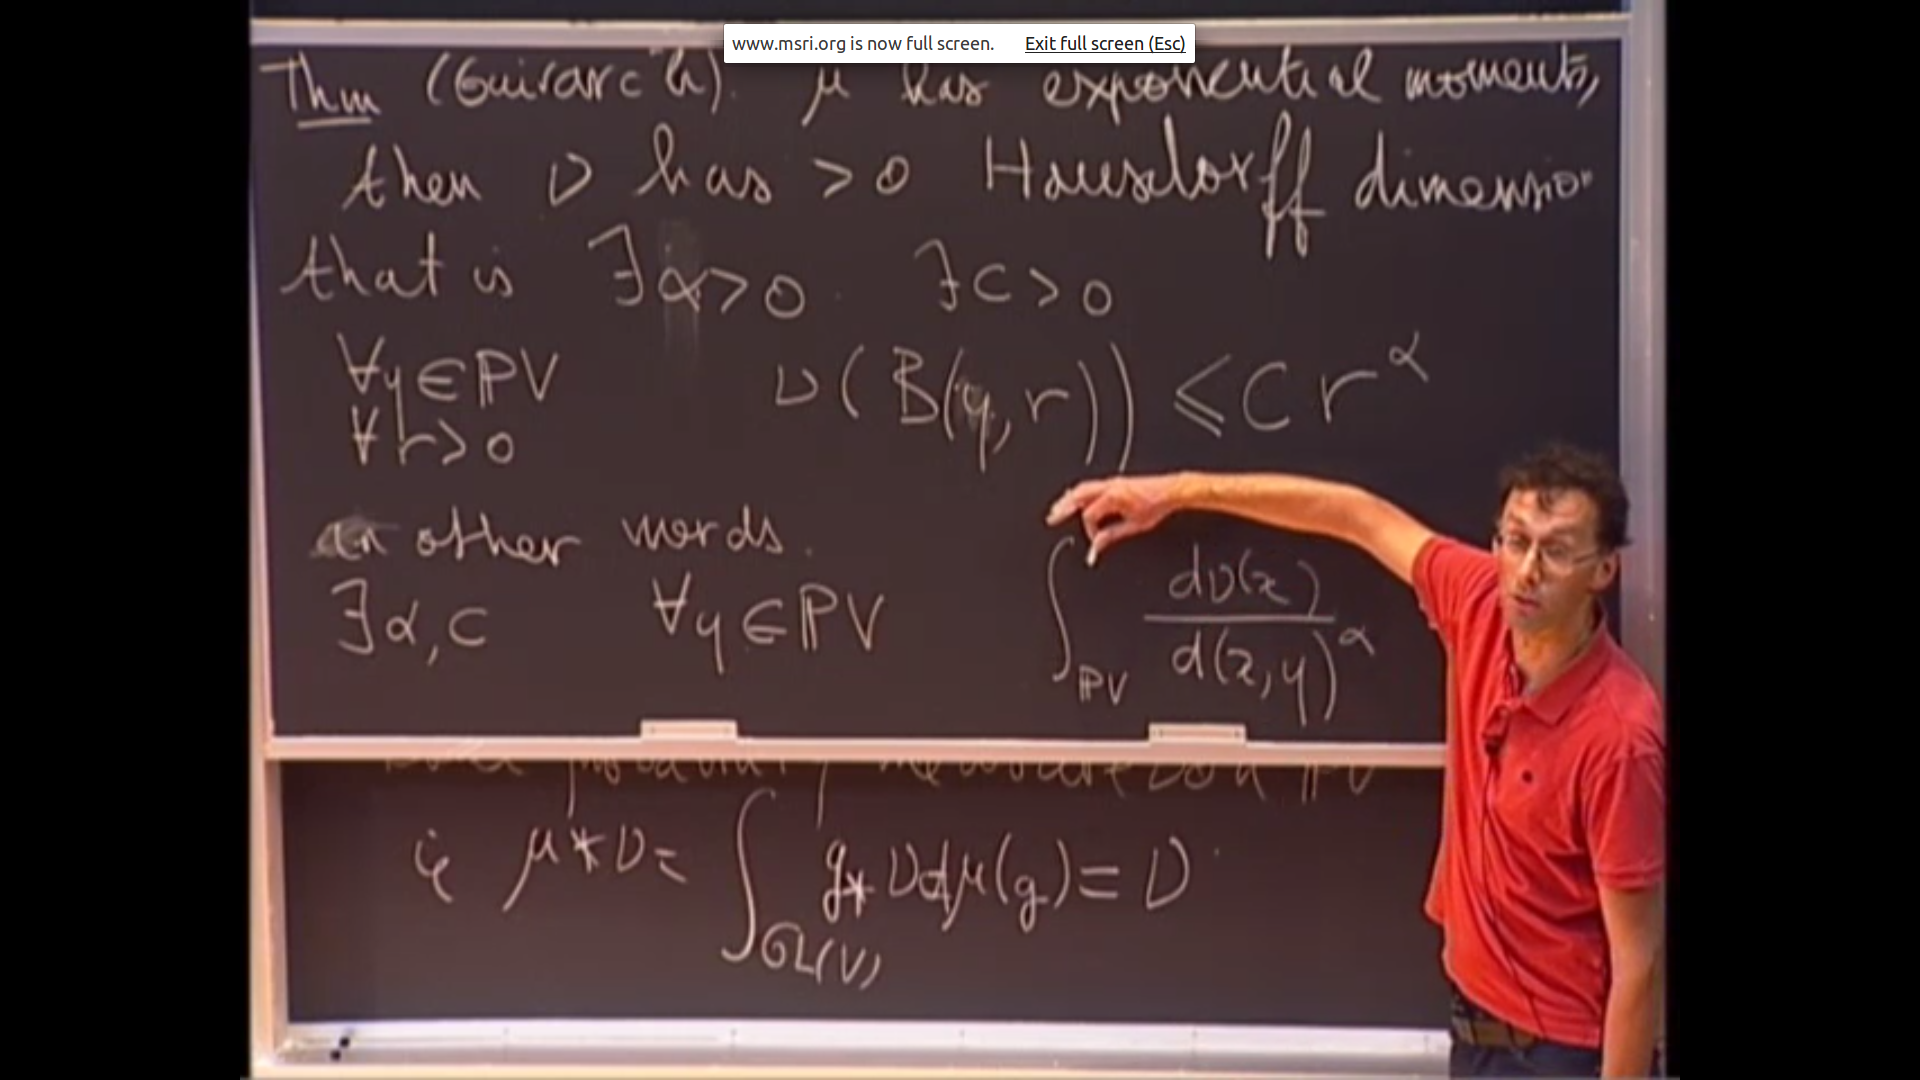 www.msri.org is now full screen. Exit full screen (Esc)
Thm (Guivarc'h). μ has exponential moments,
then ν has > 0 Hausdorff dimension
that is ∃ α > 0 ∃ C > 0
∀y ∈ ℙV ν(B(y,r)) ⩽ C r^α
∀r > 0
in other words.
∃ α, C ∀y ∈ ℙV ∫_{ℙV} dν(x) / d(x,y)^α
probability measure ν on ℙV
if μ * ν = ∫_{GL(V)} g_* ν dμ(g) = ν